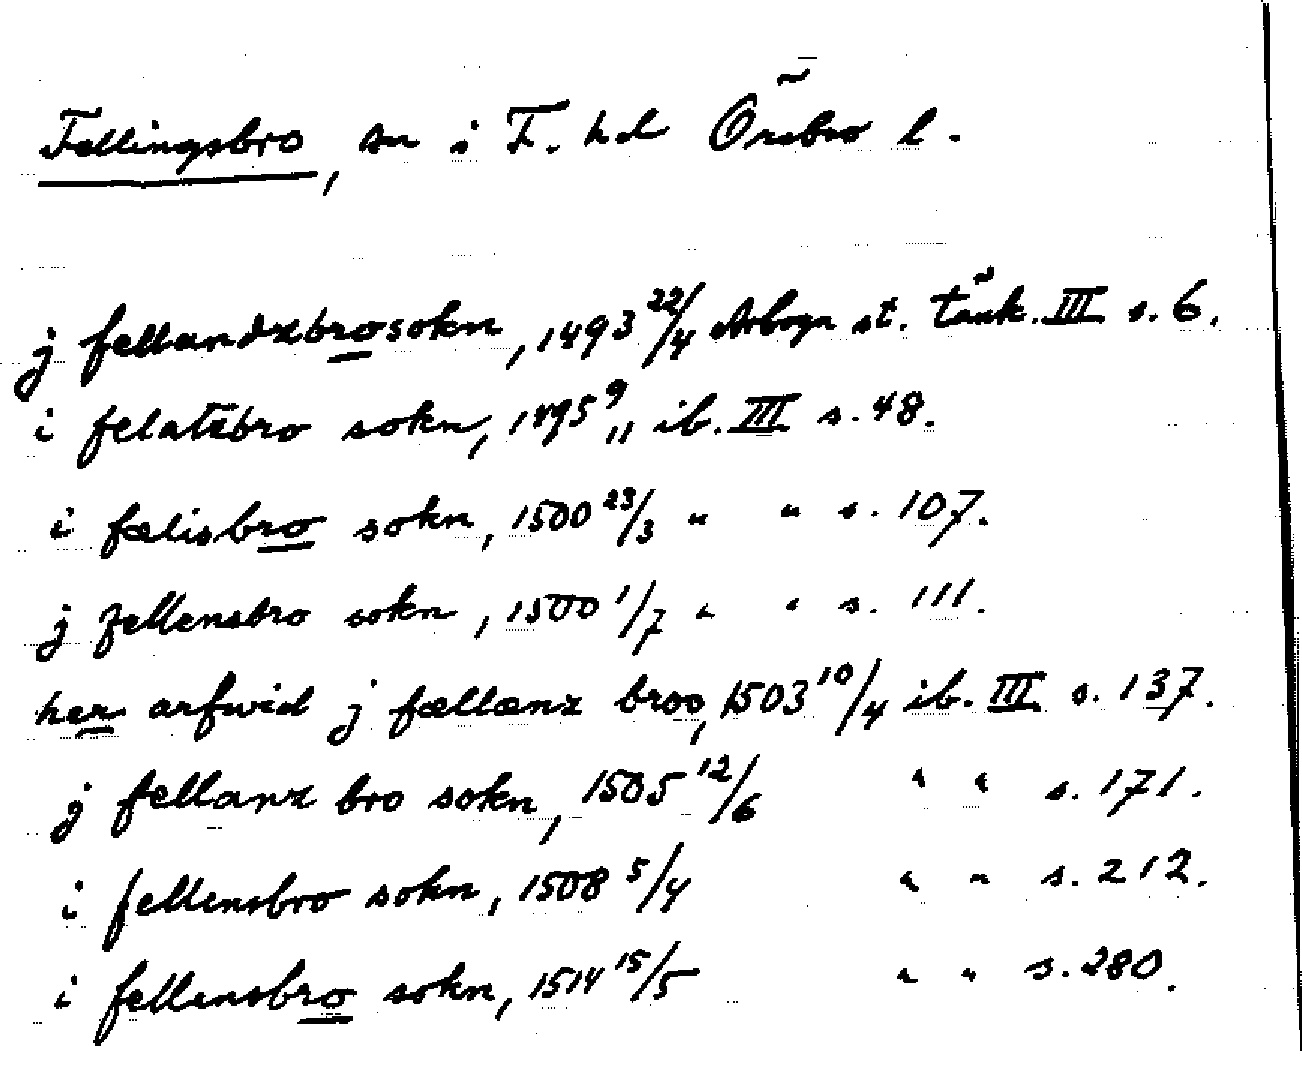 Fellingsbro, sn i F. hd Örebro l.
j fellandxbrosokn, 1493 22/4 Arboga st. tänk. III s. 6.
i felatzbro sokn, 1495 9/11 ib. III s. 48.
i fælisbro sokn, 1500 23/3 " " s. 107.
j fellensbro sokn, 1500 1/7 " " s. 111.
her arfwid j fællænx broo, 1503 10/4 ib. III s. 137.
j fellanx bro sokn, 1505 12/6 " " s. 171.
i fellensbro sokn, 1508 5/4 " " s. 212.
i fellensbro sokn, 1514 15/5 " " s. 280.